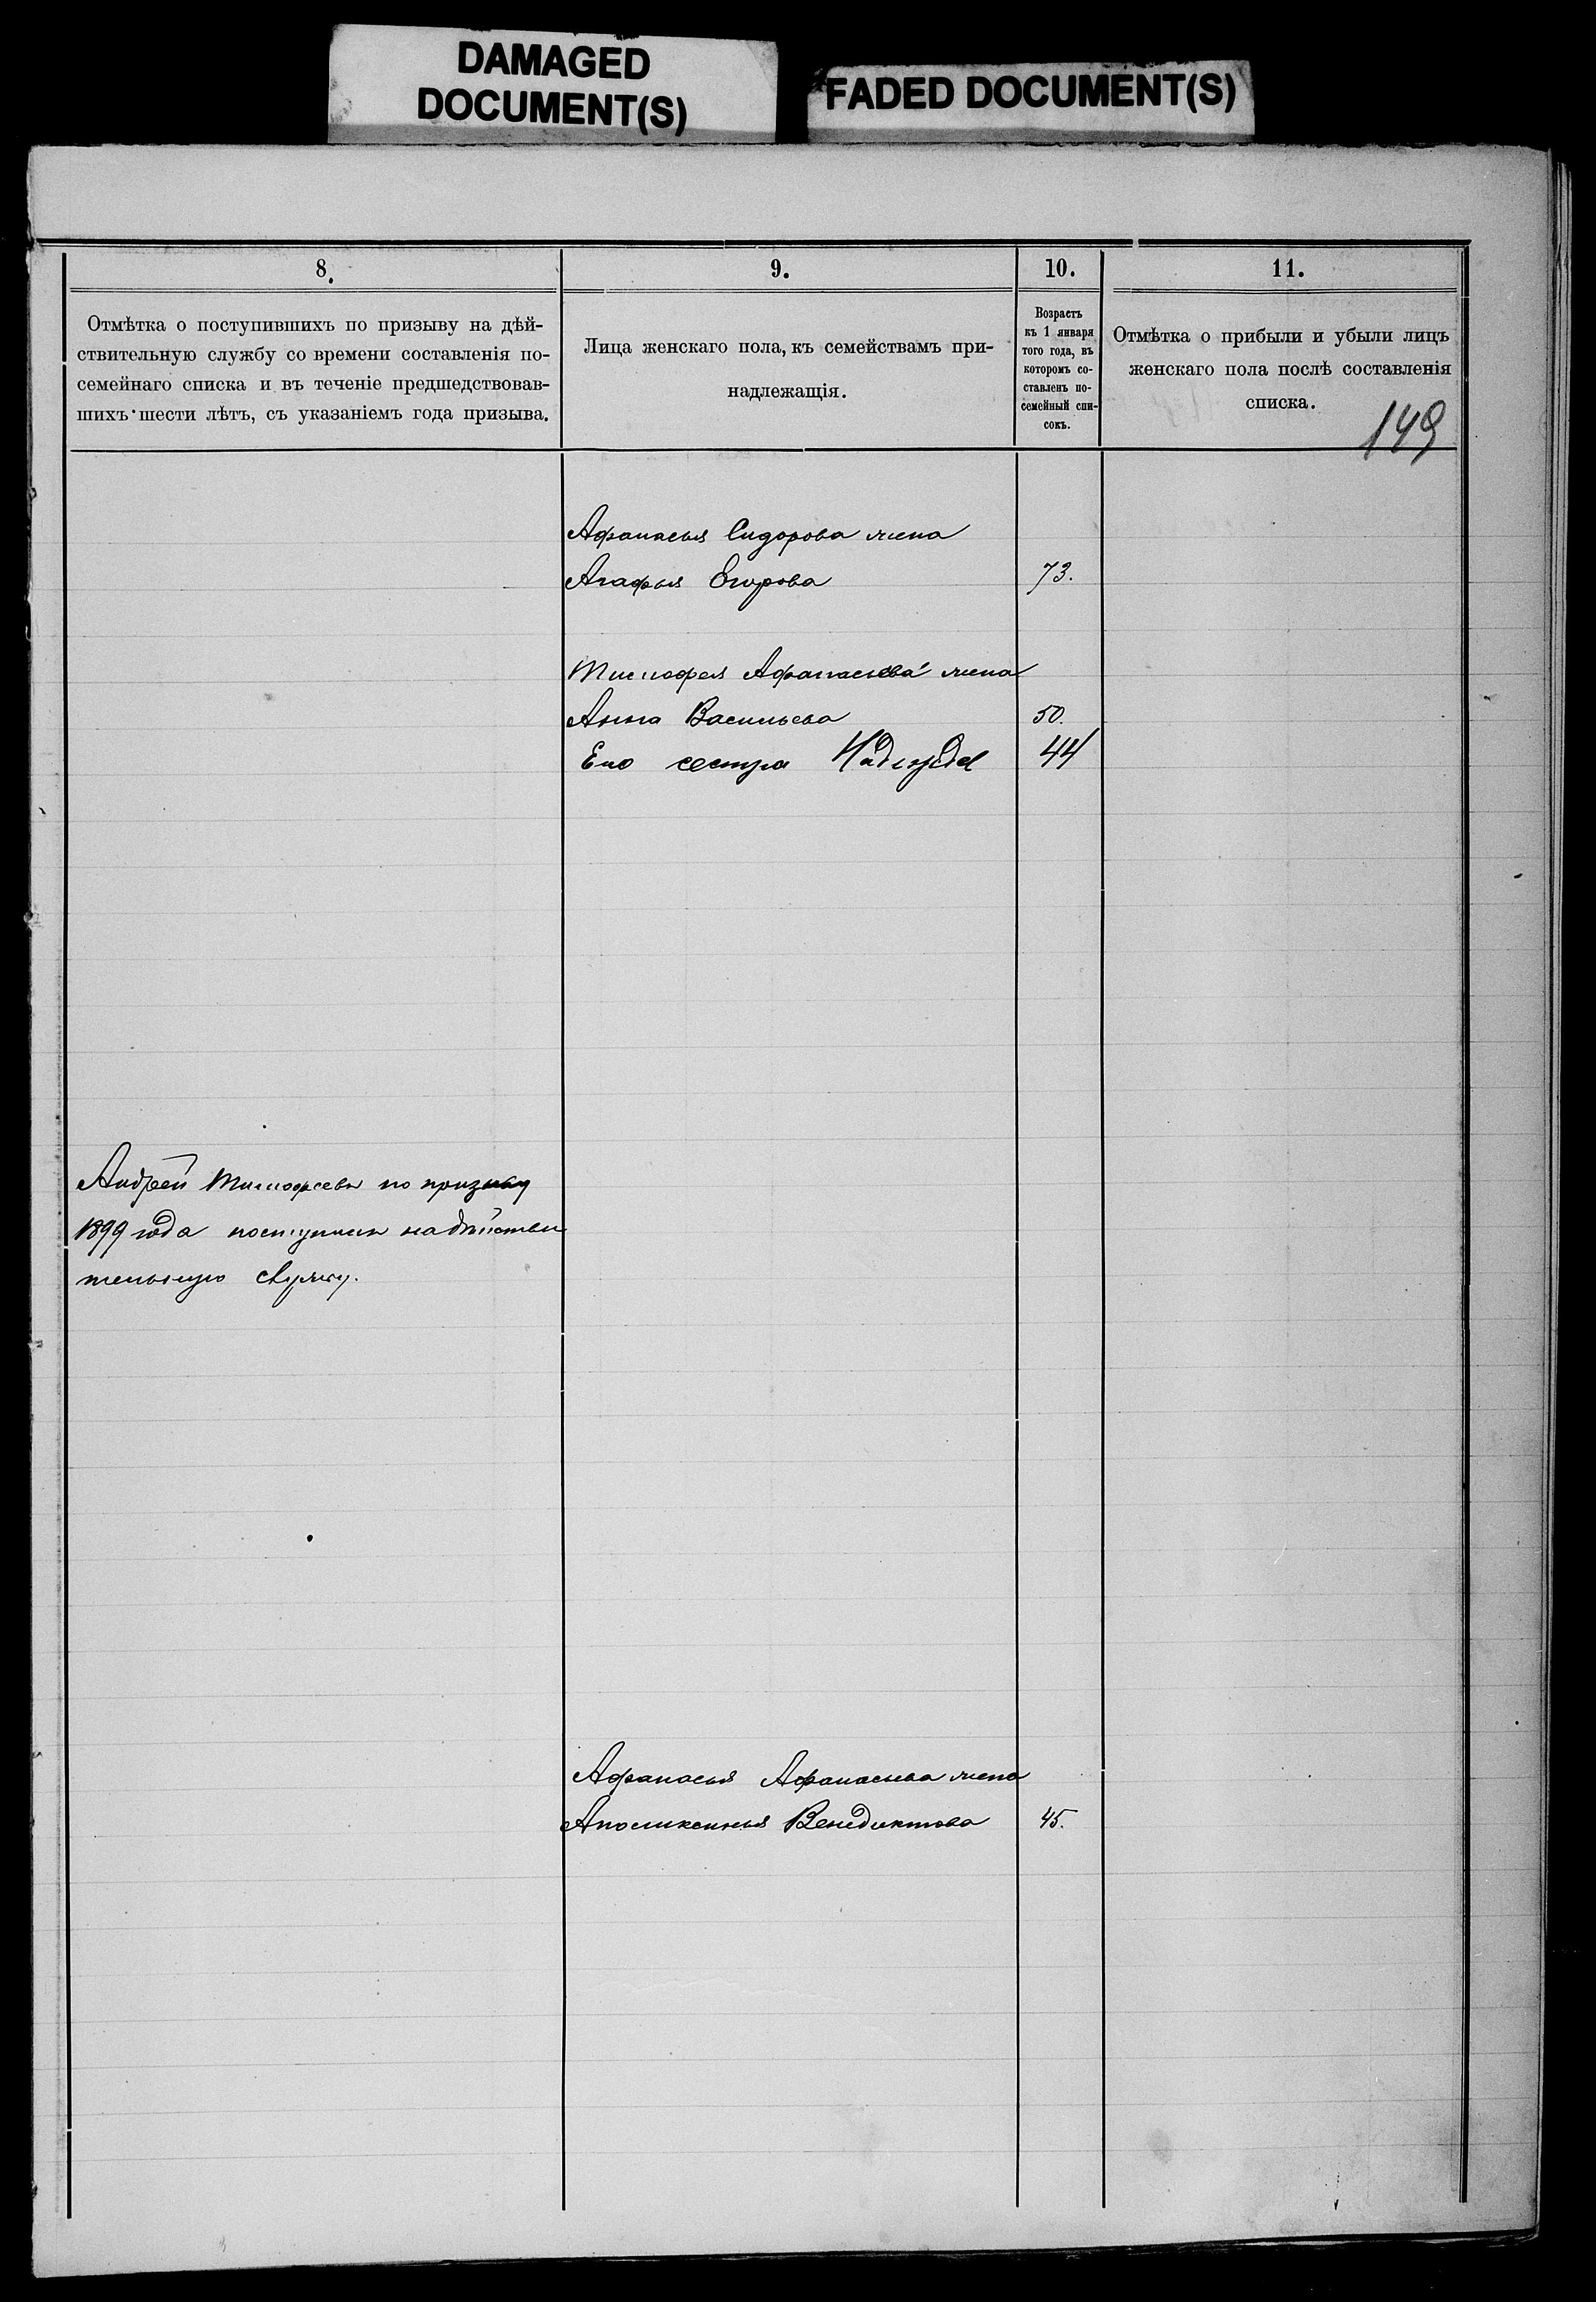 DAMAGED
DOCUMENT(S)
FADED DOCUMENT(S)
8.
9.
10.
11.
Отмѣтка о поступившихъ по призыву на дѣй-
ствительную службу со времени составленія по-
семейнаго списка и въ теченіе предшедствовав-
шихъ шести лѣтъ, съ указаніемъ года призыва.
Лица женскаго пола, къ семействамъ при-
надлежащія.
Возрастъ
къ 1 января
того года, въ
которомъ со-
ставленъ по-
семейный спи-
сокъ.
Отмѣтка о прибыли и убыли лицъ
женскаго пола послѣ составленія
списка.
149
Афанасья Сидорова жена
Агафья Егорова 73.
Тимофея Афанасьева жена
Анна Васильева 50.
Его сестра Надежда 44
Андрей Тимофеевъ по призыву
1899 года поступилъ на дѣйстви
тельную службу.
Афанасья Афанасьева жена
Аполикенья Венедиктова 45.